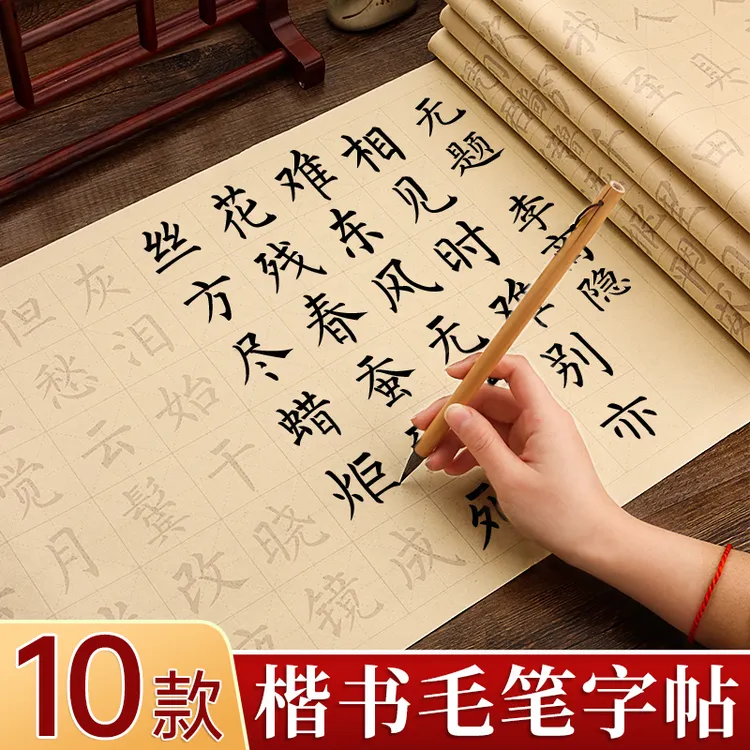 无题 李商隐
相见时难别亦
难东风无
花残春蚕死
丝方尽蜡炬成
灰泪始干晓镜
但愁云鬓改
觉月
10款
楷书毛笔字帖